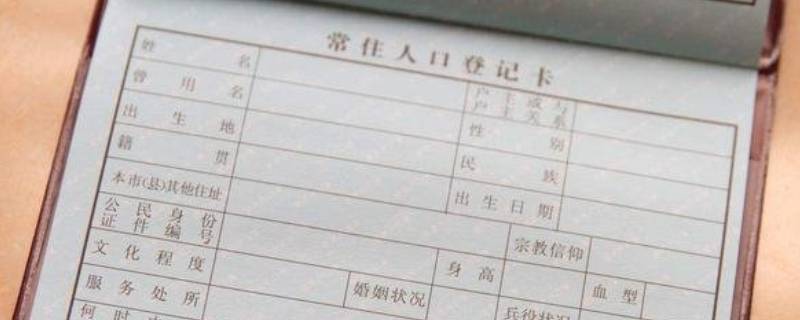 常住人口登记卡
姓名 户主或与户主关系
曾用名 性别
出生地 民族
籍贯 出生日期
本市(县)其他住址
公民身份证件编号 宗教信仰
文化程度 身高 血型
服务处所 婚姻状况 兵役状况
何时由